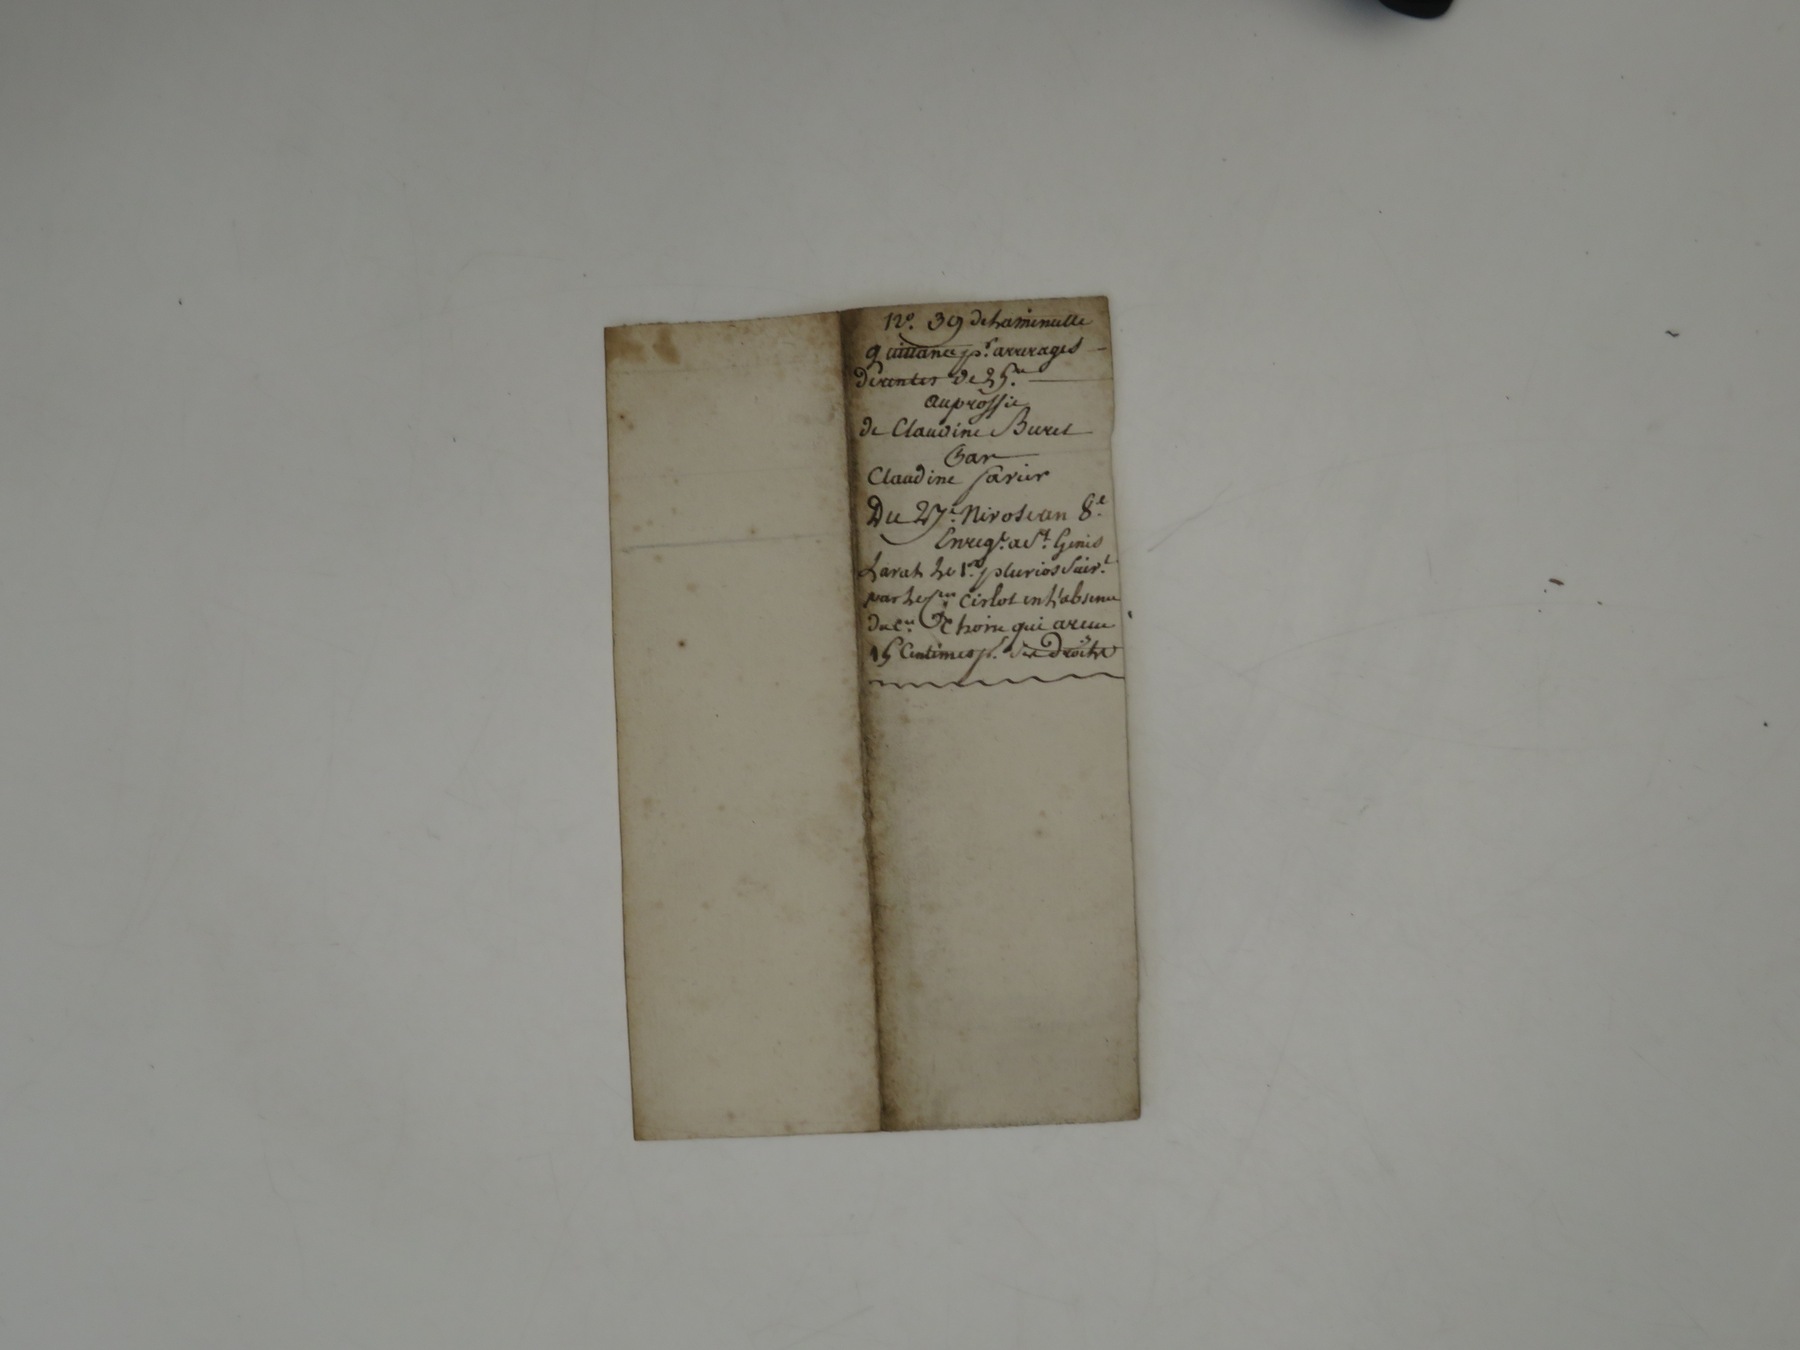 N.º 39 de la minutte
Quittance p.r arrerages
de rentes de 25.tt
au proffit
de Claudine Buret
Par
Claudine Farier
Du 27.e Nivose an 8.e
Enreg.é a S.t Genis
Laval le 1.er pluviose suiv.t
par le c.en Cirlot en l'absence
du c.en qui a recu
15 Centimes p.r Droits